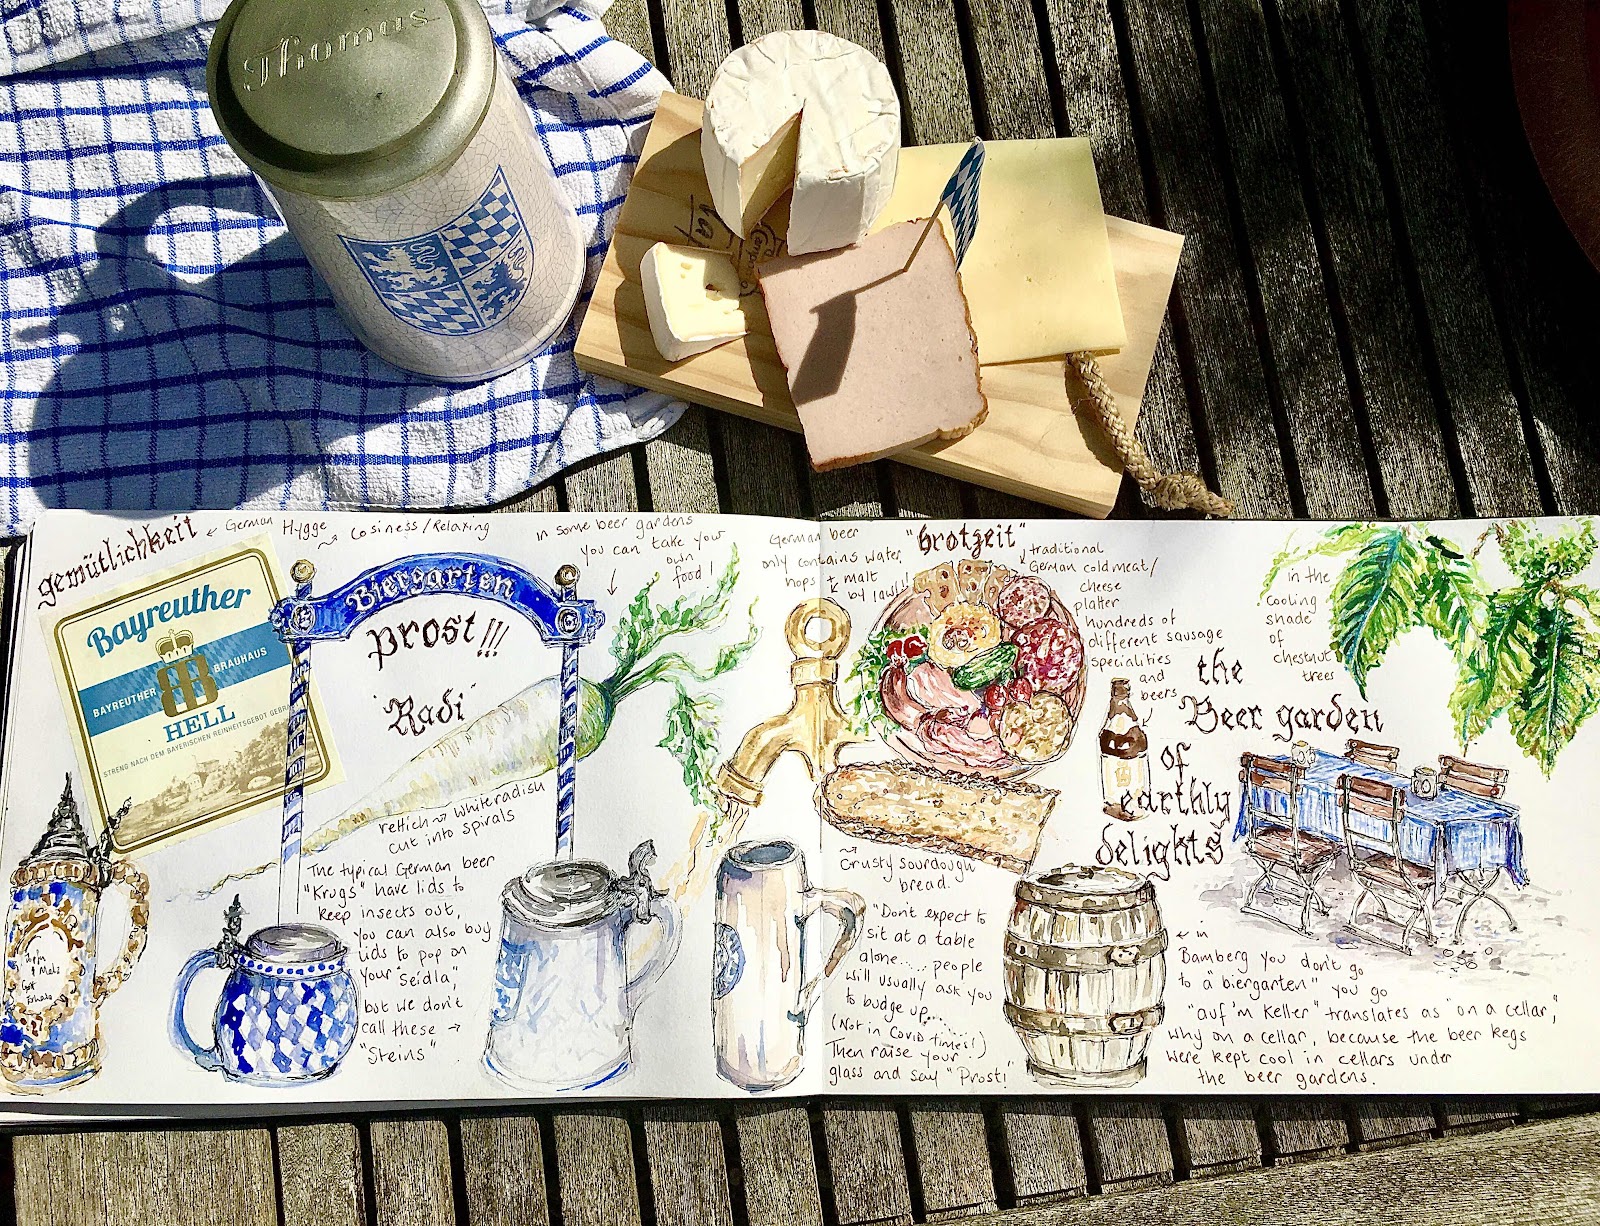 Thomas
gemütlichkeit
← German Hygge
Cosiness/Relaxing
in some beer gardens
you can take your
own
food!
Bayreuther
BAYREUTHER
BRAUHAUS
HELL
STRENG NACH DEM BAYERISCHEN REINHEITSGEBOT
Biergarten
Prost!!!
"Radi"
rettich → white radish
cut into spirals
The typical German beer
"Krugs" have lids to
keep insects out,
you can also buy
lids to pop on
your "Seidla",
but we don't
call these →
"Steins".
Hopfn
& Malz
Gott
German beer
only contains water,
hops + malt
by law!!
"Brotzeit"
traditional
German cold meat/
cheese
platter
hundreds of
different sausage
specialities
and
beers
crusty sourdough
bread.
"Don't expect to
sit at a table
alone..... people
will usually ask you
to budge up.......
(Not in Covid times!!)
Then raise your
glass and say "Prost!"
in the
cooling
shade
of
chestnut
trees
the
Beer garden
of
earthly
delights
← in
Bamberg you don't go
to a "biergarten" you go
"auf'm Keller" translates as "on a cellar",
why on a cellar, because the beer kegs
were kept cool in cellars under
the beer gardens.